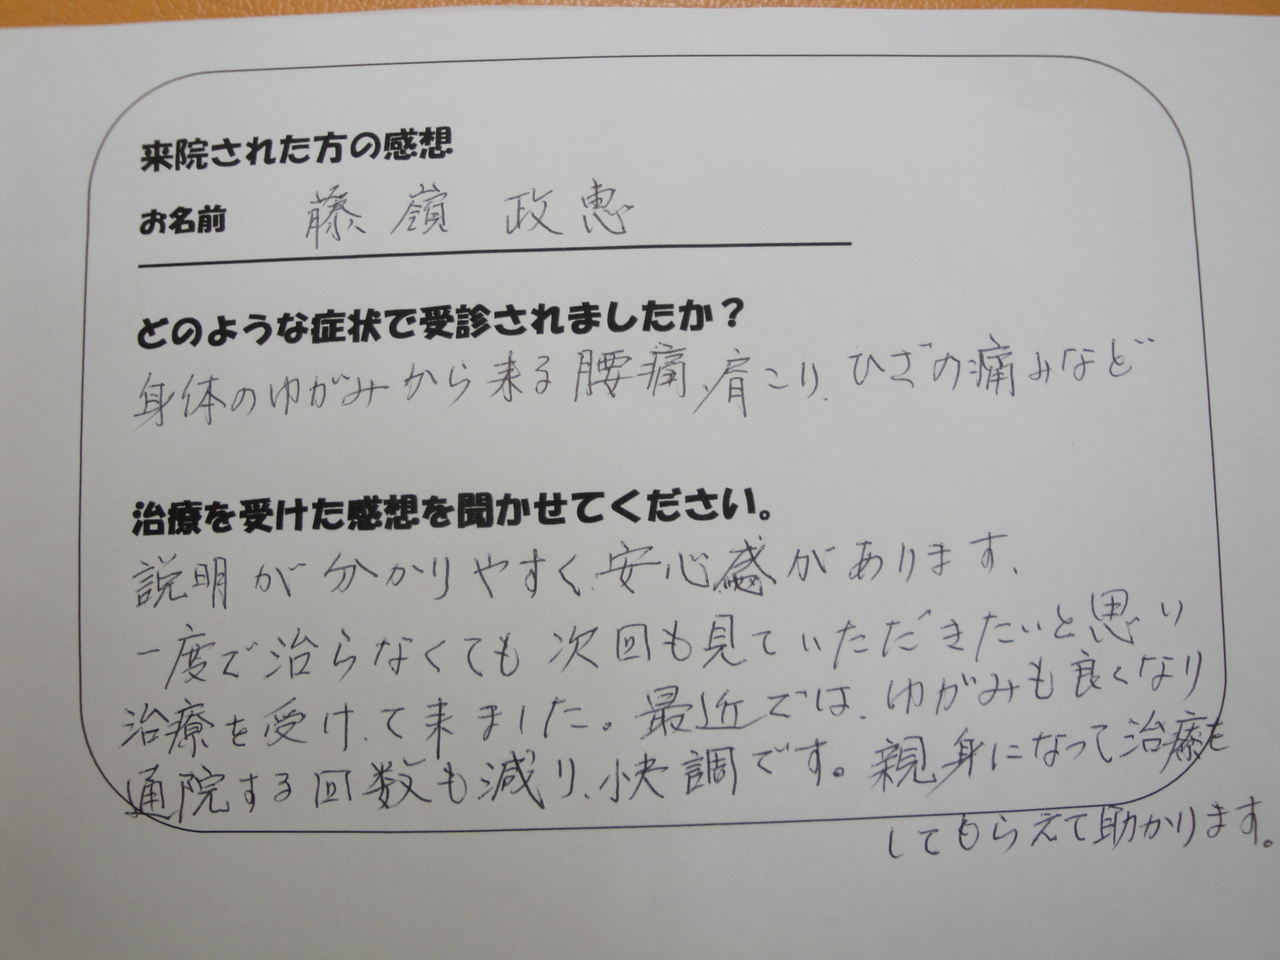 来院された方の感想
お名前 藤嶺 政恵
どのような症状で受診されましたか？
身体のゆがみから来る腰痛、肩こり、ひざの痛みなど
治療を受けた感想を聞かせてください。
説明が分かりやすく、安心感があります、
一度で治らなくても次回も見ていただきたいと思い
治療を受け、て来ました。最近では、ゆがみも良くなり
通院する回数も減り、快調です。親身になって治療を
してもらえて助かります。